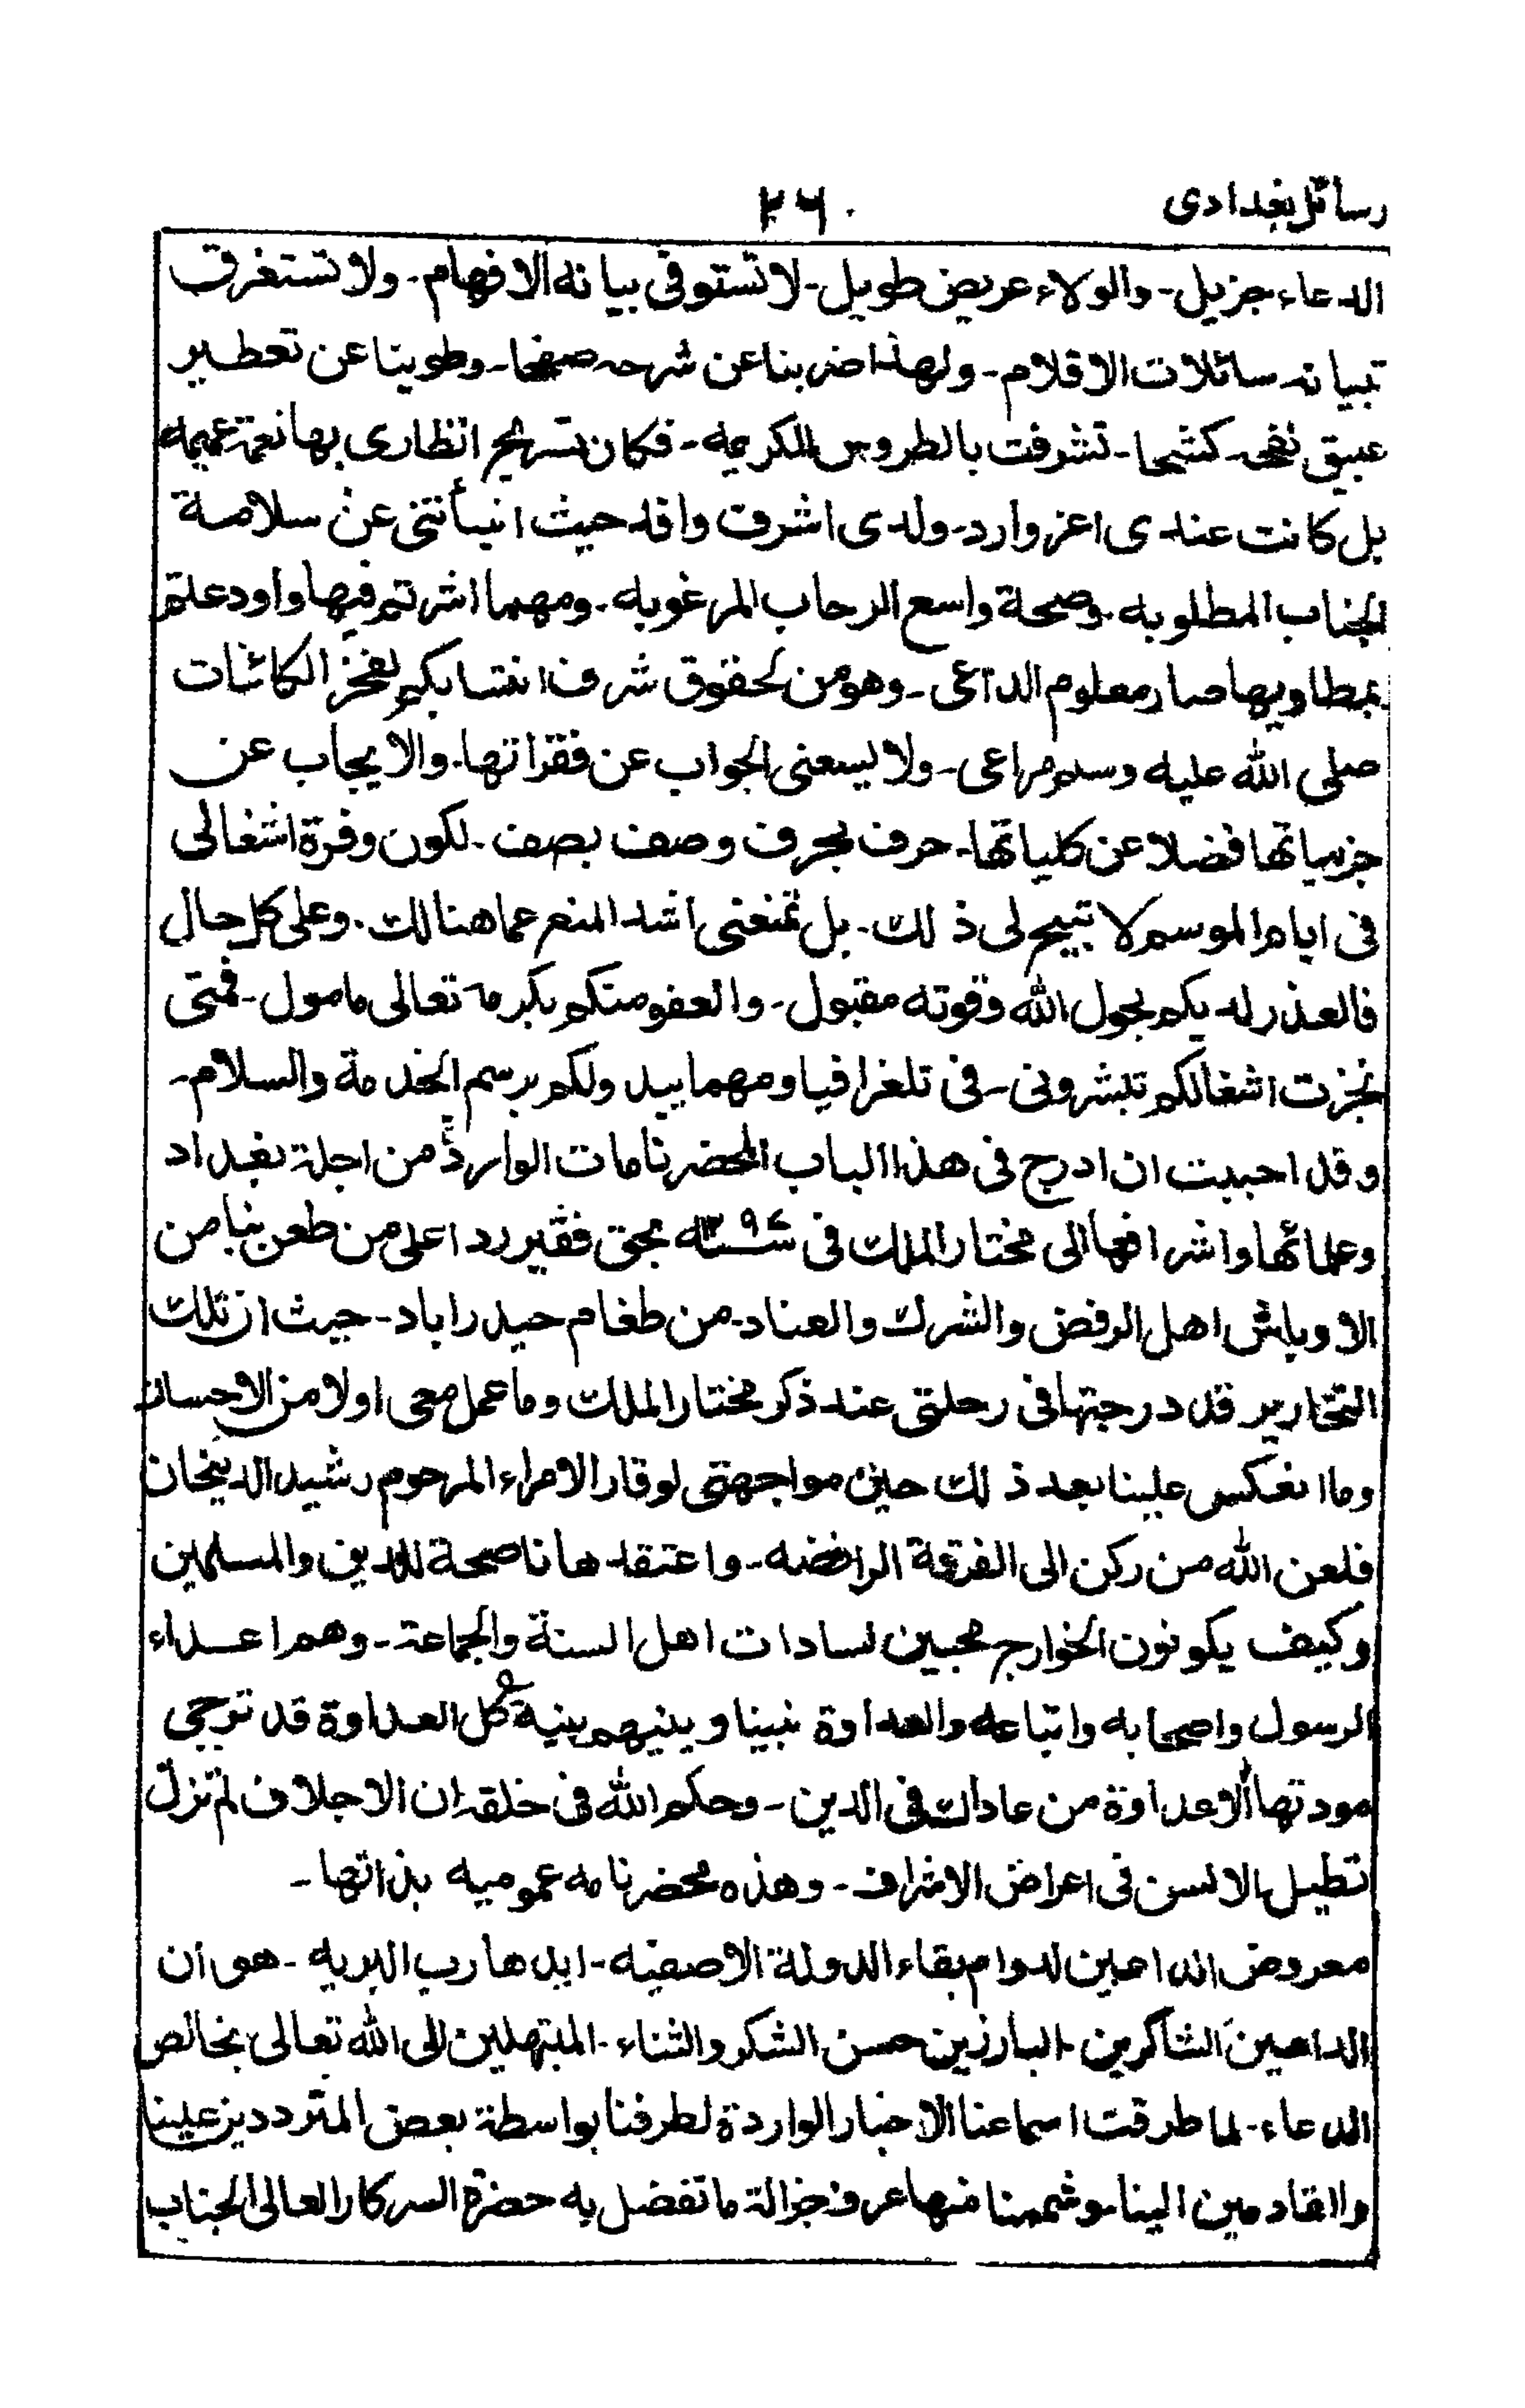 رسائل بغدادی
٢٦٠
الدعاء جزيل۔ والولاء عريض طويل۔ لا تستوفى بيانه الافهام۔ ولا تستغرق
تبيانه سائلات الاقلام۔ ولهذا ضربنا عن شرحه صفحا۔ وطوينا عن تعطير
عبيق نفحه كشحا۔ تشرفت بالطروس الكريمه۔ فكان تسريح انظاری بها نعمة عميمه
بل كانت عندی اعز وارد۔ ولدی اشرف وافد حيث انبأتنی عن سلامة
الجناب المطلوبه۔ وصحة واسع الرحاب المرغوبه۔ ومهما اشرتم فيها واودعتم
بمطاويها صار معلوم الداعی۔ وهو من لحقوق شرف انتسابكم لفخر الكائنات
صلى الله عليه وسلم مراعی۔ ولا يسعنی الجواب عن فقراتها۔ والايجاب عن
جزيياتها فضلا عن كلياتها۔ حرف بحرف وصف بصف۔ لكون وفرة اشغالی
فی ايام الموسم لا تبيح لی ذلك۔ بل تمنعنی اشد المنع عما هنالك۔ وعلى كل حال
فالعذر لديكم بحول الله وقوته مقبول۔ والعفو منكم بكرمه تعالى مامول۔ فمتی
نجزت اشغالكم تبشرونی۔ فی تلغرافيا ومهما يبد ولكم برسم الخدمة والسلام۔
وقد احببت ان ادرج فی هذا الباب المحضرنامات الواردة من اجلة بغداد
وعلمائها واشرافها الى مختار الملك فی سنه ١٢٩٤ بحق فقير ردا على من طعن بنا من
الاوباش اهل الرفض والشرك والعناد۔ من طغام حيدراباد۔ حيث ان تلك
التحارير قد درجتها فی رحلتی عند ذكر مختار الملك وما عمل معی اولا من الاحسان
وما انعكس علينا بعد ذلك حين مواجهتی لوقار الامراء المرحوم رشيد الدينخان
فلعن الله من ركن الى الفرقة الرافضه۔ واعتقدها ناصحة للدين والمسلمين
وكيف يكونون الخوارج محبين لسادات اهل السنة والجماعة۔ وهم اعداء
الرسول واصحابه واتباعه والعداوة بيننا وبينهم بينة كل العداوة قد ترجی
مودتها الا عداوة من عاداك فی الدين۔ وحكم الله فی خلقه ان الاجلاف لم تزل
تطيل الالسن فی اعراض الاشراف۔ وهذه محضرنامه عموميه بذاتها۔
معروض الداعين لدوام بقاء الدولة الاصفيه۔ ايدها رب البريه۔ هو ان
الداعين الشاكرين۔ البارزين حسن الشكر والثناء۔ المبتهلين الى الله تعالى بخالص
الدعاء۔ لما طرقت اسماعنا الاخبار الواردة لطرفنا بواسطة بعض المترددين علينا
والقادمين الينا۔ وشممنا منها عرف جزالة ما تفضل به حضرة السركار العالى الجناب